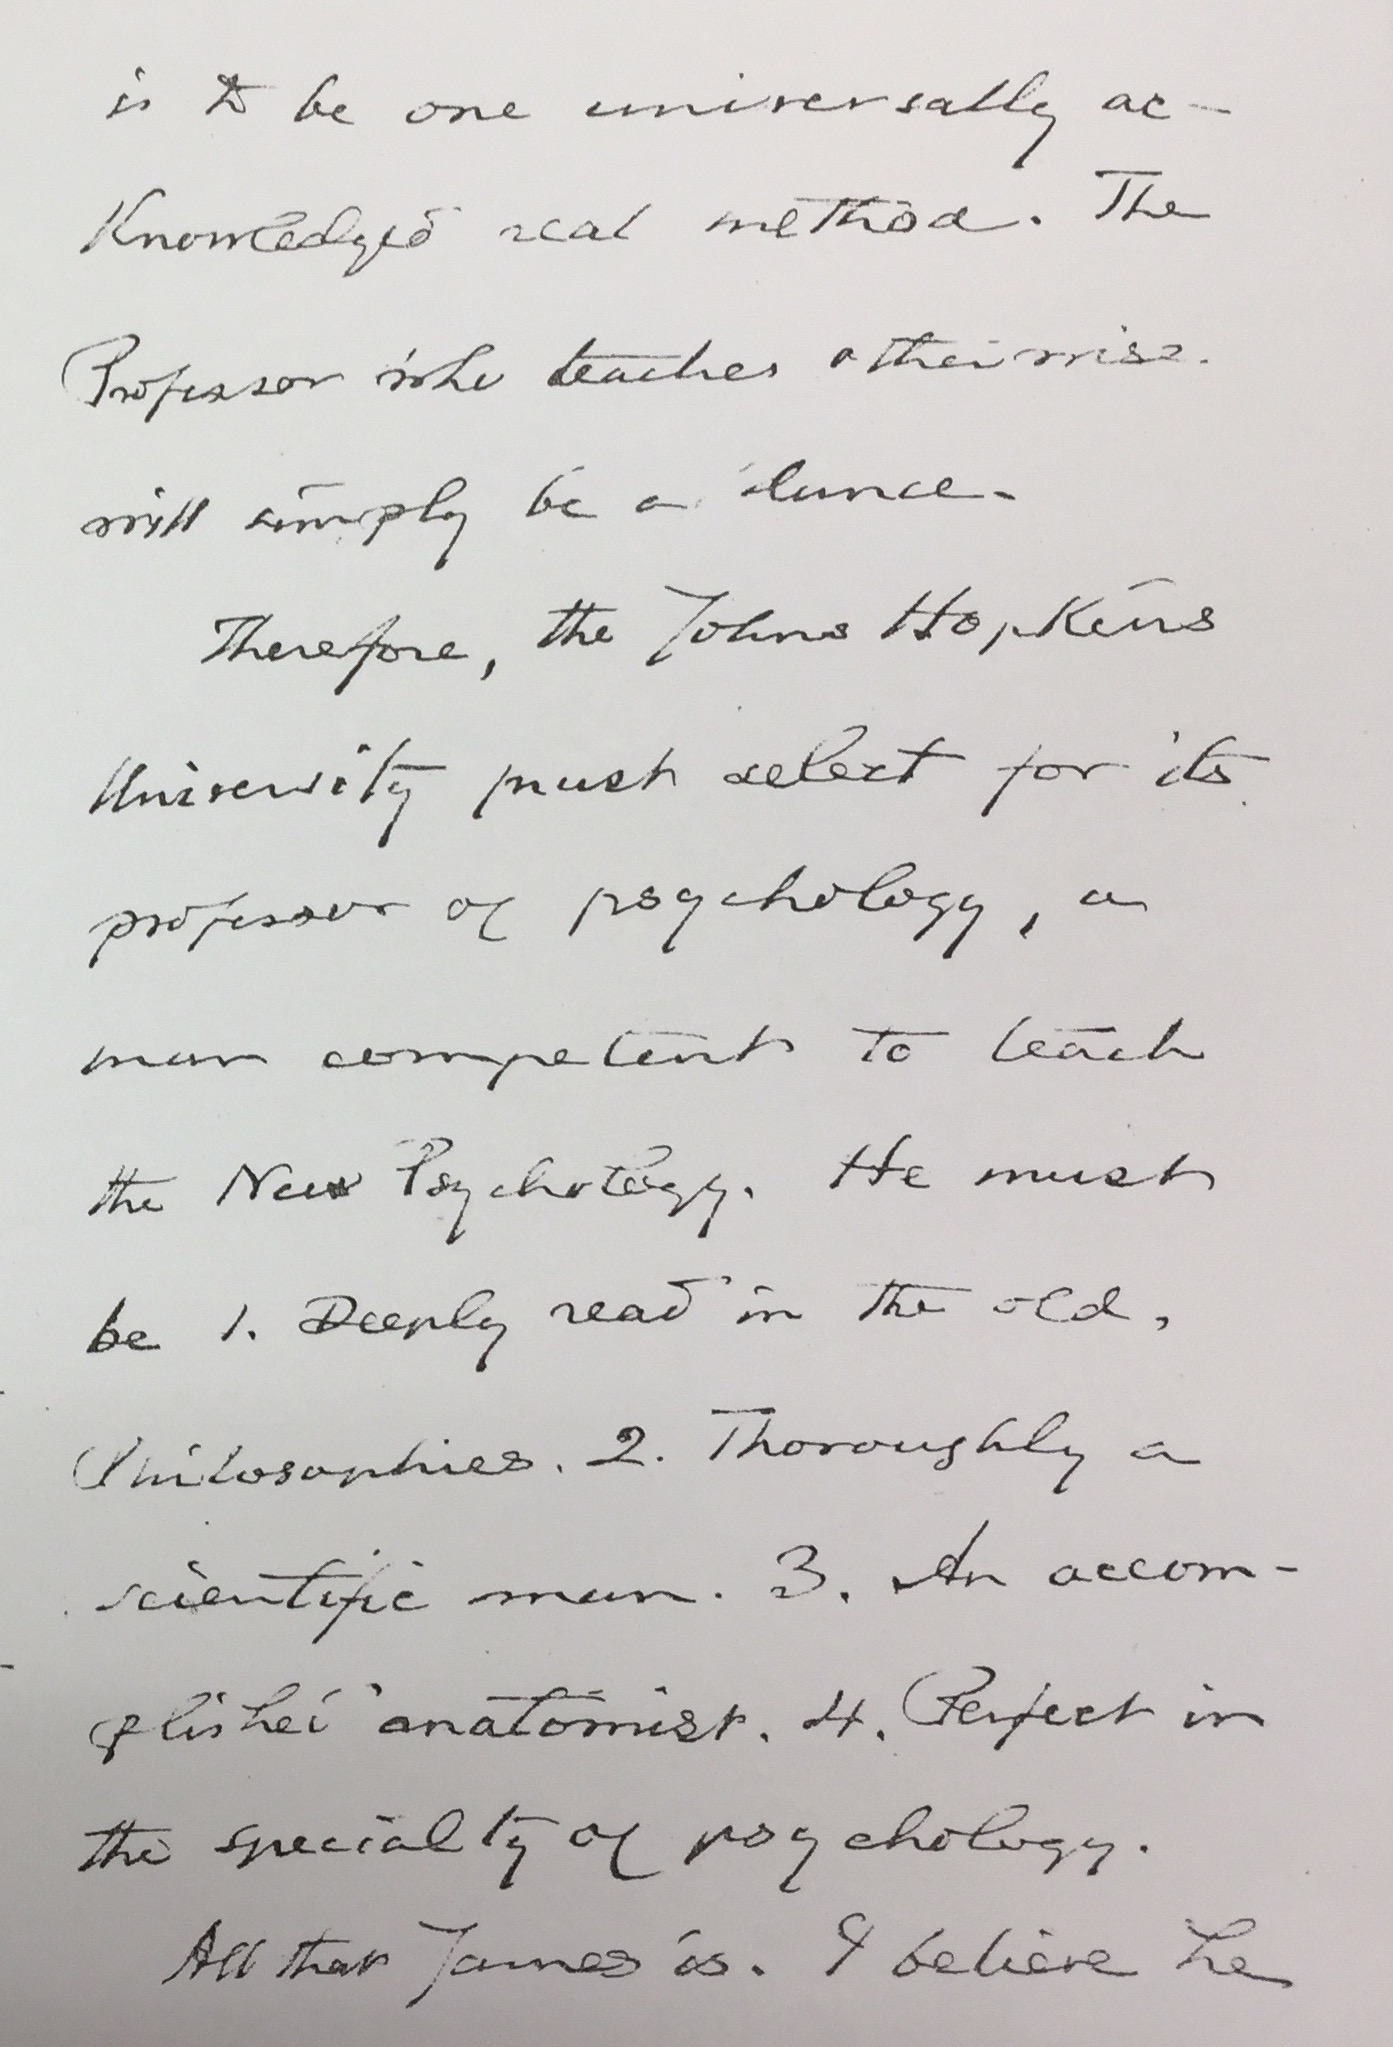 is to be one universally ac-
knowledged real method. The
Professor who teaches otherwise
will simply be a dunce.
Therefore, the Johns Hopkins
University must select for its
professor of psychology, a
man competent to teach
the New Psychology. He must
be 1. Deeply read in the old,
Philosophies. 2. Thoroughly a
scientific man. 3. An accom-
plished anatomist. 4. Perfect in
the specialty of psychology.
All that James is. I believe he